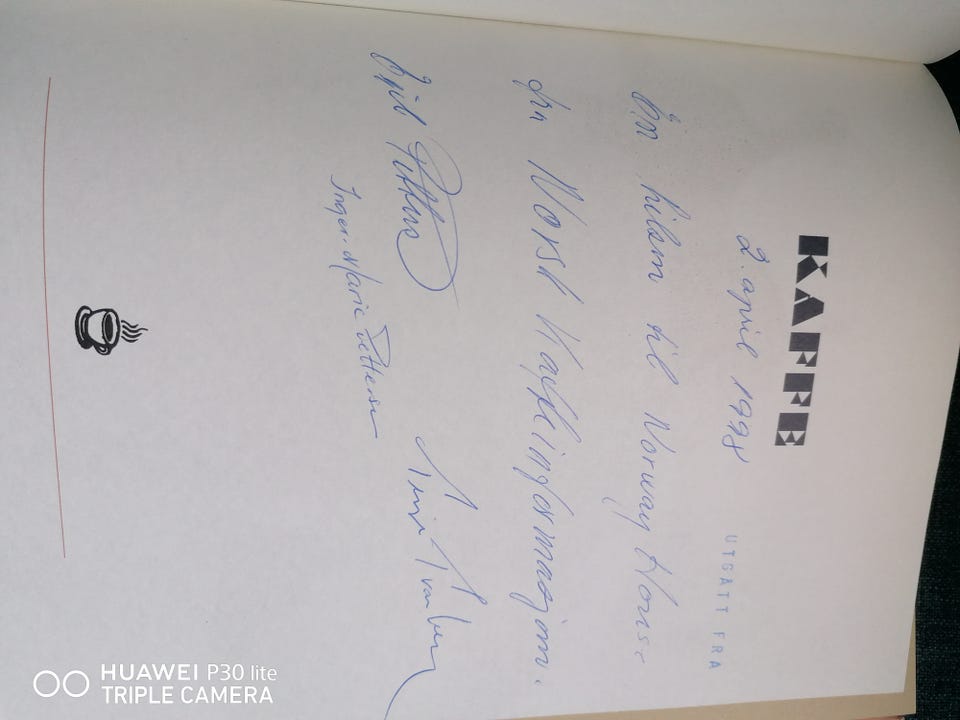 KAFFE
UTGÅTT FRA
2. april 1998
En hilsen til Norway House
fra Norsk Kaffeinformasjon.
Egil Pettersen
Inger-Marie Pettersen
HUAWEI P30 lite
TRIPLE CAMERA